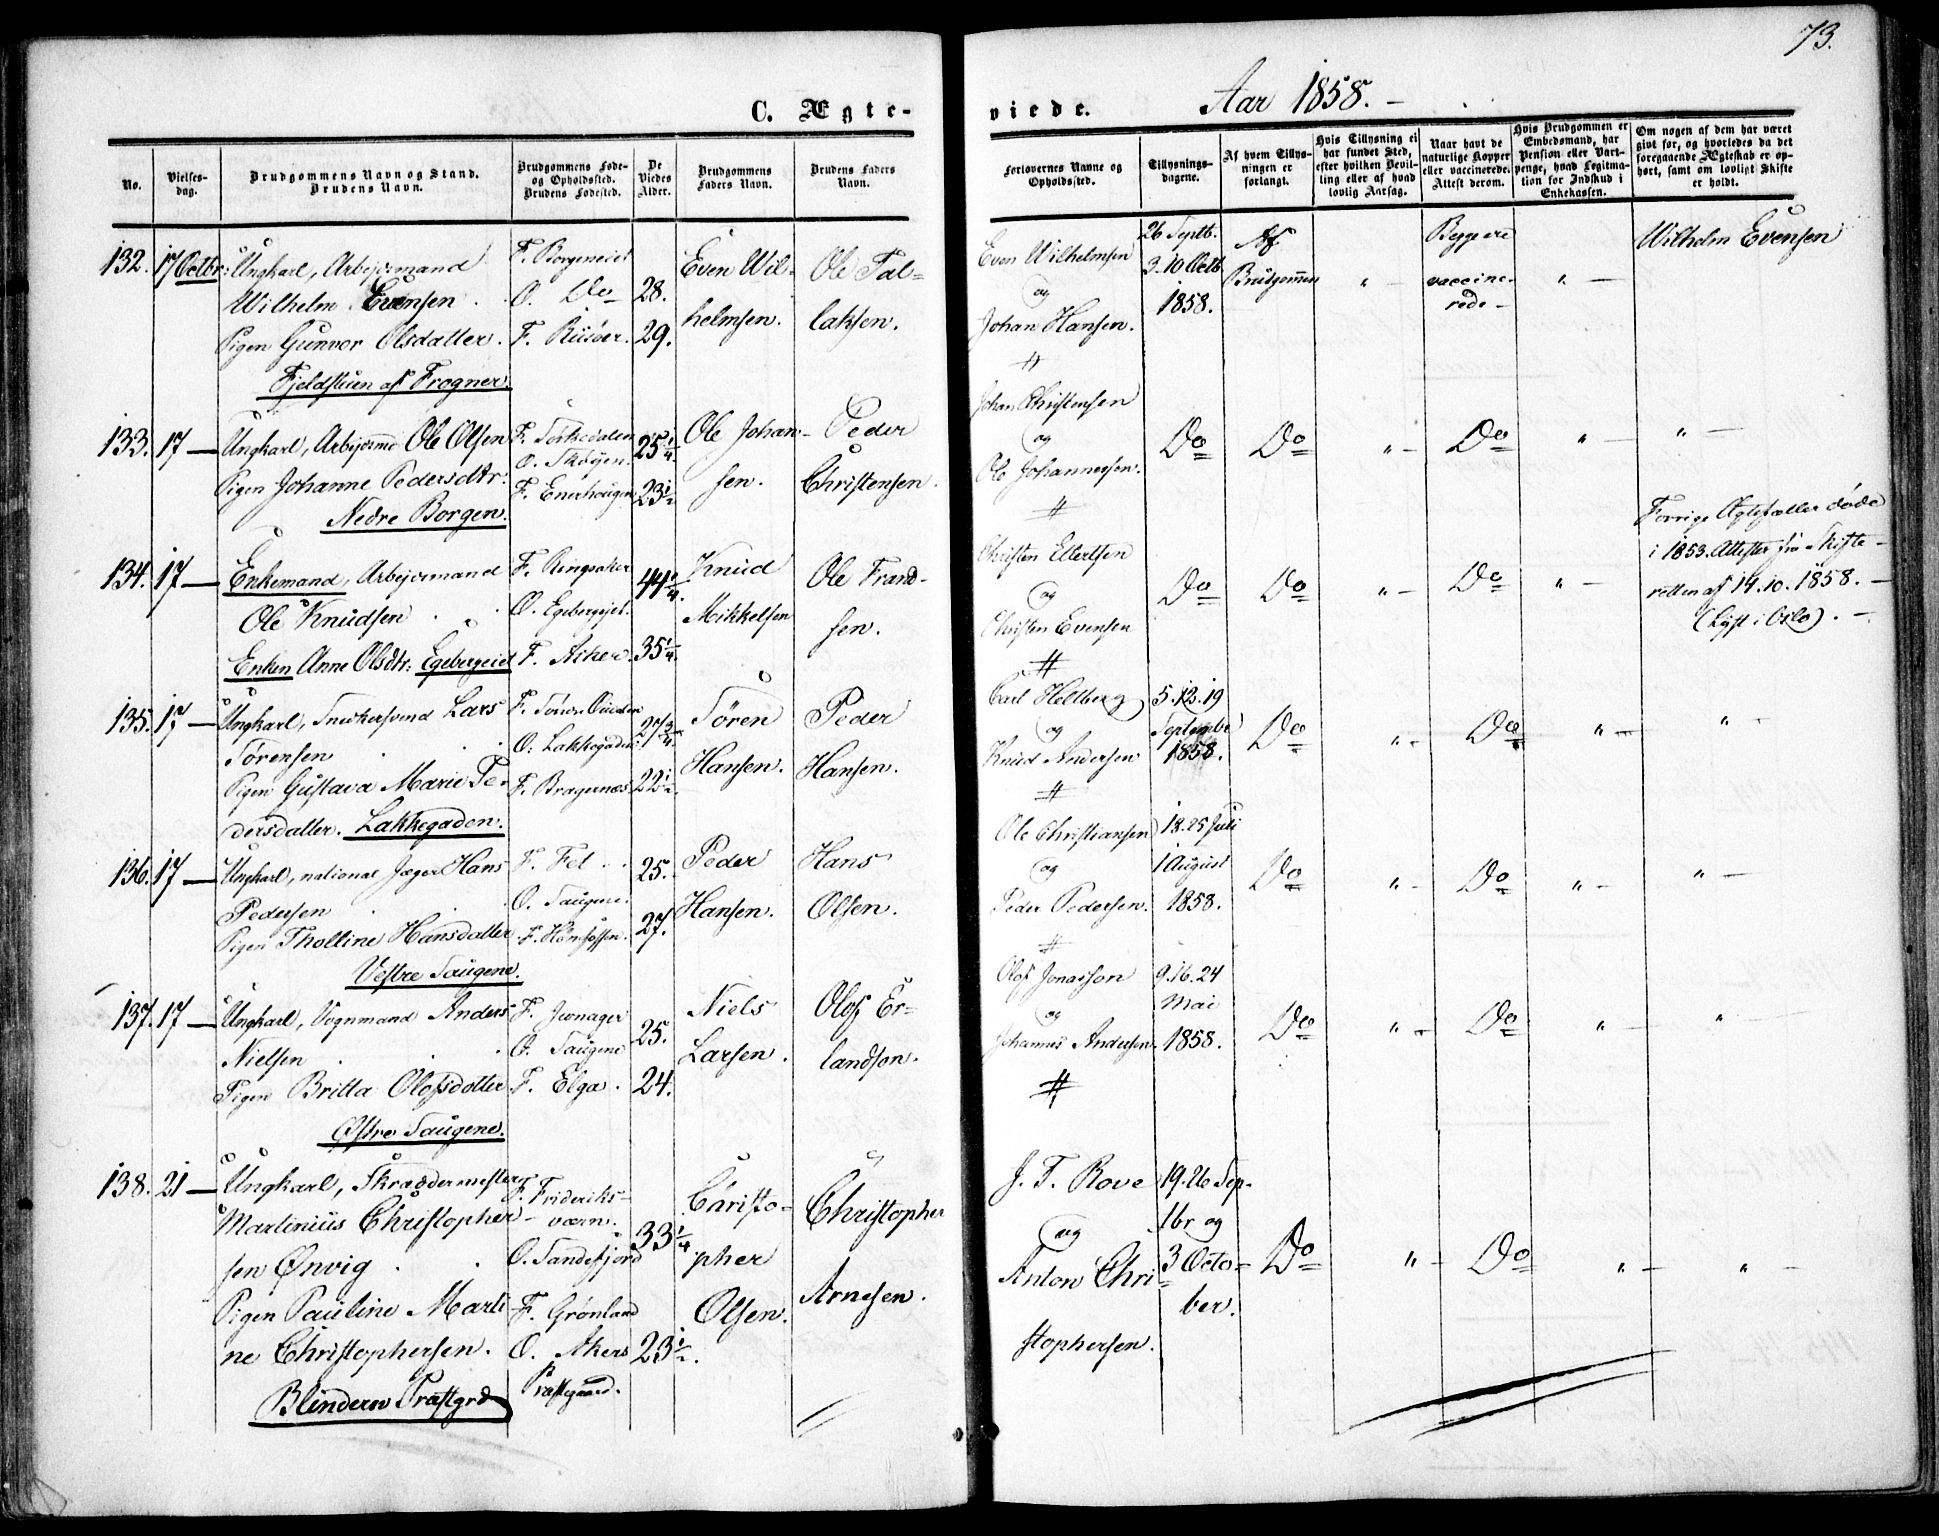 73.
C. Ægte-
viede.
Aar 1858. –
No.
Vielses-
dag.
Brudgommens Navn og Stand.
Brudens Navn.
Brudgommens Føde-
og Opholdssted.
Brudens Fødested.
De
Viedes
Alder.
Brudgommens
Faders Navn.
Brudens Faders
Navn.
Forlovernes Navne og
Opholdssted.
Tillysnings-
dagene.
Af hvem Tillys-
ningen er
forlangt.
Hvis Tillysning ei
har fundet Sted,
efter hvilken Bevil-
ling eller af hvad
lovlig Aarsag.
Naar havt de
naturlige Kopper
eller vaccinerede.
Attest derom.
Hvis Brudgommen er
Embedsmand, har
Pension eller Vart-
penge, hvad Legitima-
tion for Indskud i
Enkekassen.
Om nogen af dem har været
givt før, og hvorledes da det
foregaaende Ægteskab er op-
hørt, samt om lovligt Skifte
er holdt.
132. 17 Octbr: Ungkarl, Arbejdsmand
Wilhelm Evensen
Pigen Gunvor Olsdatter.
Fjeldstuen af Frogner.
F. Borgeneiet
O. Do
F. Riisöer.
28.
29.
Even Wil-
helmsen.
Ole Tal-
laksen.
Even Wilhelmsen
og
Johan Hansen.
#
26 Septb.
3. 10 Octb
1858.
Af
Brudgommen
" –
Begge ere
vaccine-
rede –
" –
Wilhelm Evensen
133. 17 — Ungkarl, Arbejdsmd Ole Olsen
Pigen Johanne Pedersdtr:
Nedre Borgen.
F. Sörkedalen
O. Skøyen.
F. Enerhaugen
25 1/4.
23 1/2
Ole Johan-
sen.
Peder
Christensen.
Johan Christensen
og
Ole Johannessen.
#
Do
Do
" –
Do
" –
" –
134. 17 — Enkemand, Arbejdsmand
Ole Knudsen
Enken Anne Olsdtr: Egebergeiet
F. Ringsaker
O. Egebergejet.
F. Aker.
44 1/4.
35 1/4.
Knud
Mikkelsen
Ole Frand-
sen.
Christen Ellertsen
og
Christen Evensen
#
Do
Do
" –
Do
" –
Forrige Ægtefæller døde
i 1853. Attester fra Skifte-
retten af 14.10.1858. –
(Lyst i Oslo). –
135. 17 — Ungkarl, Snedkersvend Lars
Sørensen
Pigen Gustava Marie Pe-
dersdatter. Lakkegaden.
F.
O. Lakkegaden.
F. Bragernæs.
27 3/4.
22 1/2.
Sören
Hansen.
Peder
Hansen.
Carl Hellberg
og
Knud Andersen
#
5. 12. 19
Septembr
1858.
Do
" –
Do
" –
" –
136. 17 — Ungkarl, national Jæger Hans
Pedersen
Pigen Tholline Hansdatter
Vestre Saugene.
F. Fet
O. Saugene.
F.
25.
27.
Peder
Hansen.
Hans
Olsen.
Ole Christiansen
og
Peder Pedersen.
#
18. 25 Juli
1 August
1858.
Do
" –
Do
" –
" –
137. 17 — Ungkarl, Vognmand Anders
Nielsen
Pigen Britta Olofsdotter
Østre Saugene.
F. Jevnager
O. Saugene
F. Elga.
25.
24.
Niels
Larsen.
Olof Er-
landson.
Olof Jonasson
og
Johannes Andersen.
#
9. 16. 24
Mai
1858.
Do
" –
Do
" –
" –
138. 21 — Ungkarl, Skræddermester
Martinius Christopher-
sen Ønvig
Pigen Pauline Marti
ne Christophersen.
Blindern Præstgrd
F. Frideriks-
værn.
O. Sandefjord
F. Grønland
O. Akers
Præstgaard.
33 1/4
23 1/2.
Christo-
pher
Olsen.
Christopher
Arnesen.
J. F. Rove
og
Anton Chri-
stophersen.
19. 26 Sep-
tbr og
3 Octo-
ber.
Do
" –
Do
" –
" –